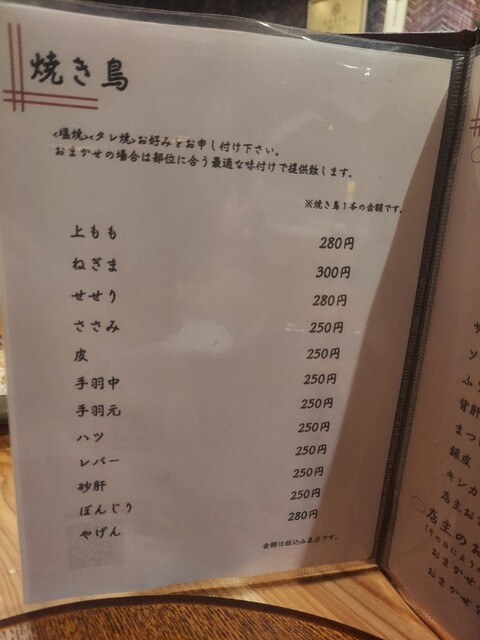 焼き鳥
<塩焼><タレ焼>お好みをお申し付け下さい。
おまかせの場合は部位に合う最適な味付けで提供致します。
※焼き鳥1本の金額です。
上もも 280円
ねぎま 300円
せせり 280円
ささみ 250円
皮 250円
手羽中 250円
手羽元 250円
ハツ 250円
レバー 250円
砂肝 250円
ぼんじり 250円
やげん 280円
金額は税込み表示です。
ソ
ふり
背肝
まつ
銀皮
キンカ
店主お
〇店主のお
(その日により
おまかせ
おまかせ